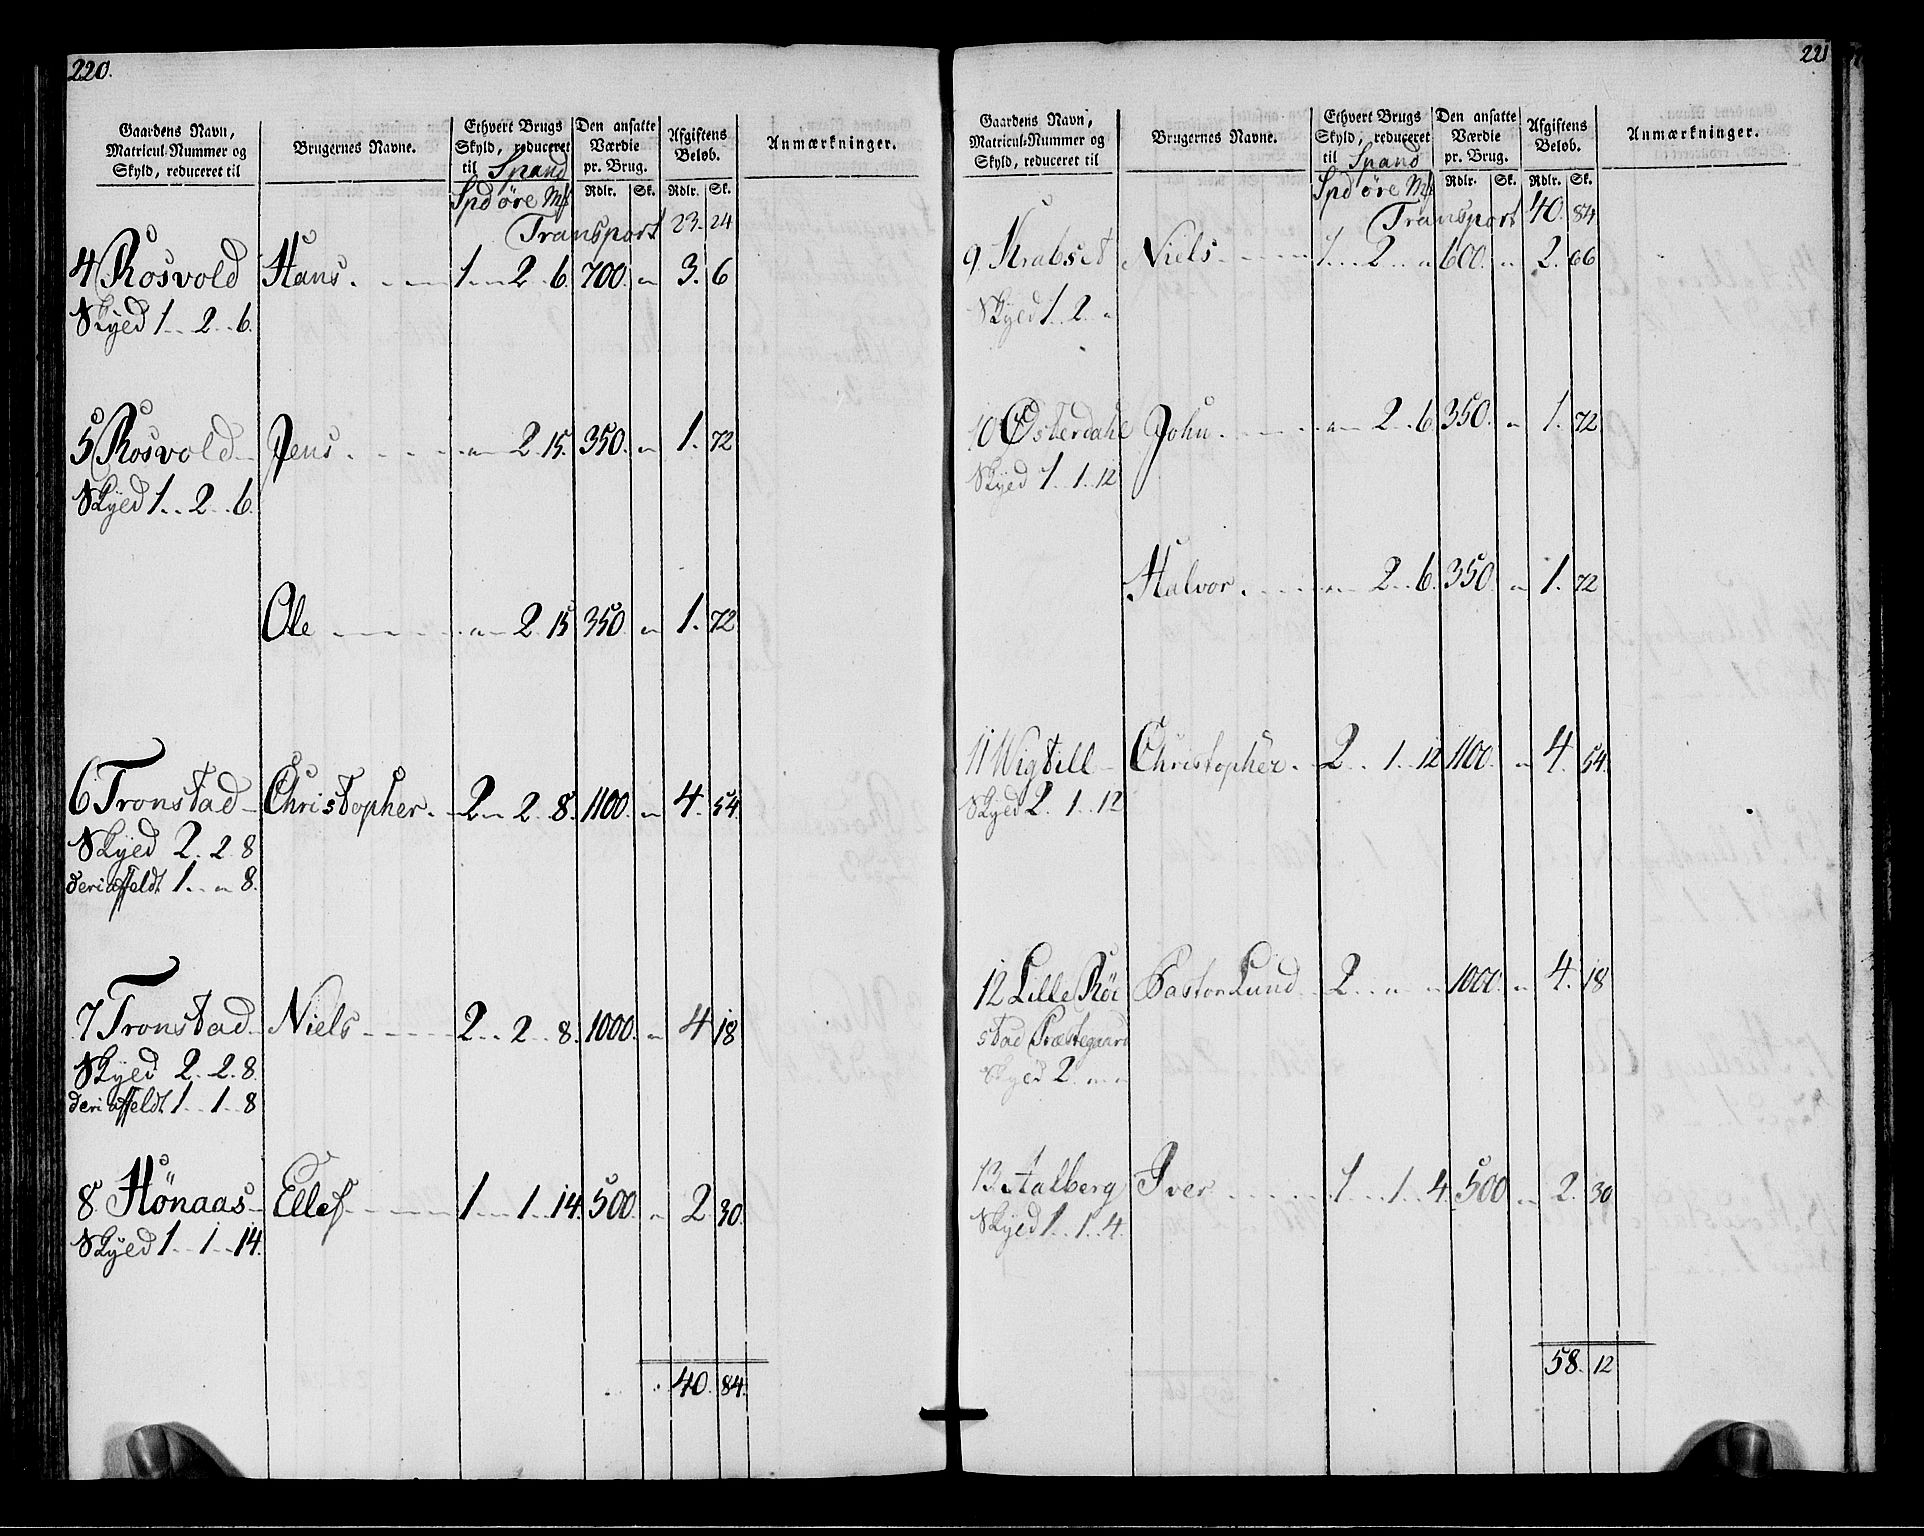 220.
Gaardens Navn, Matricul-Nummer og Skyld, reduceret til | Brugernes Navne. | Ethvert Brugs Skyld, reduceret til Spand | Den ansatte Værdie pr. Brug. | Afgiftens Beløb. | Anmærkninger.
Spd øre Mk | Rdlr. | Sk. | Rdlr. | Sk.
Transport 23. 24
4 Rosvold Hans. 1 „ 2 6. 700. „ 3. 6
Skyed 1 .. 2 .. 6.
5 Rosvold Jens. „ 2 15. 350. „ 1. 72
Skyed 1 .. 2 .. 6.
Ole „ 2. 15 350. „ 1. 72
6 Tronstad Christopher. 2 „ 2 8. 1100. „ 4. 54
Skyed 2. 2 8
deri affeldt 1 .. „ 8.
7 Tronstad Niels 2 .. 2 .. 8. 1000. „ 4 18
Skyed 2. 2. 8.
deri affeldt 1 .. 1 .. 8
8 Hönaas Ellef 1 .. 1 .. 14. 500. „ 2 30.
Skyed 1 .. 1 .. 14.
40. 84.
221
Gaardens Navn, Matricul-Nummer og Skyld, reduceret til | Brugernes Navne. | Ethvert Brugs Skyld, reduceret til Spand | Den ansatte Værdie pr. Brug. | Afgiftens Beløb. | Anmærkninger.
Spd øre Mk | Rdlr. | Sk. | Rdlr. | Sk.
Transport 40. 84
9. Krabset Niels 1 .. 2 .. „ 600. „ 2. 66
Skyed 1 .. 2 .. „
10 Østerdahl John „ 2 .. 6 350. „ 1. 72
Skyed 1 .. 1 .. 12
Halvor. „ 2 .. 6. 350. „ 1. 72
11 Wigtill Christopher. 2 .. 1 .. 12 1100. „ 4. 54.
Skyed 2. 1 .. 12
12 Lille Röe Pastor Lund 2 .. „ „ 1000. „ 4. 18
stad Præstegaard
Skyed 2. „ „
13 Aalberg Iver 1 .. 1 .. 4. 500 „ 2. 30
Skyed 1 .. 1 .. 4.
58. 12